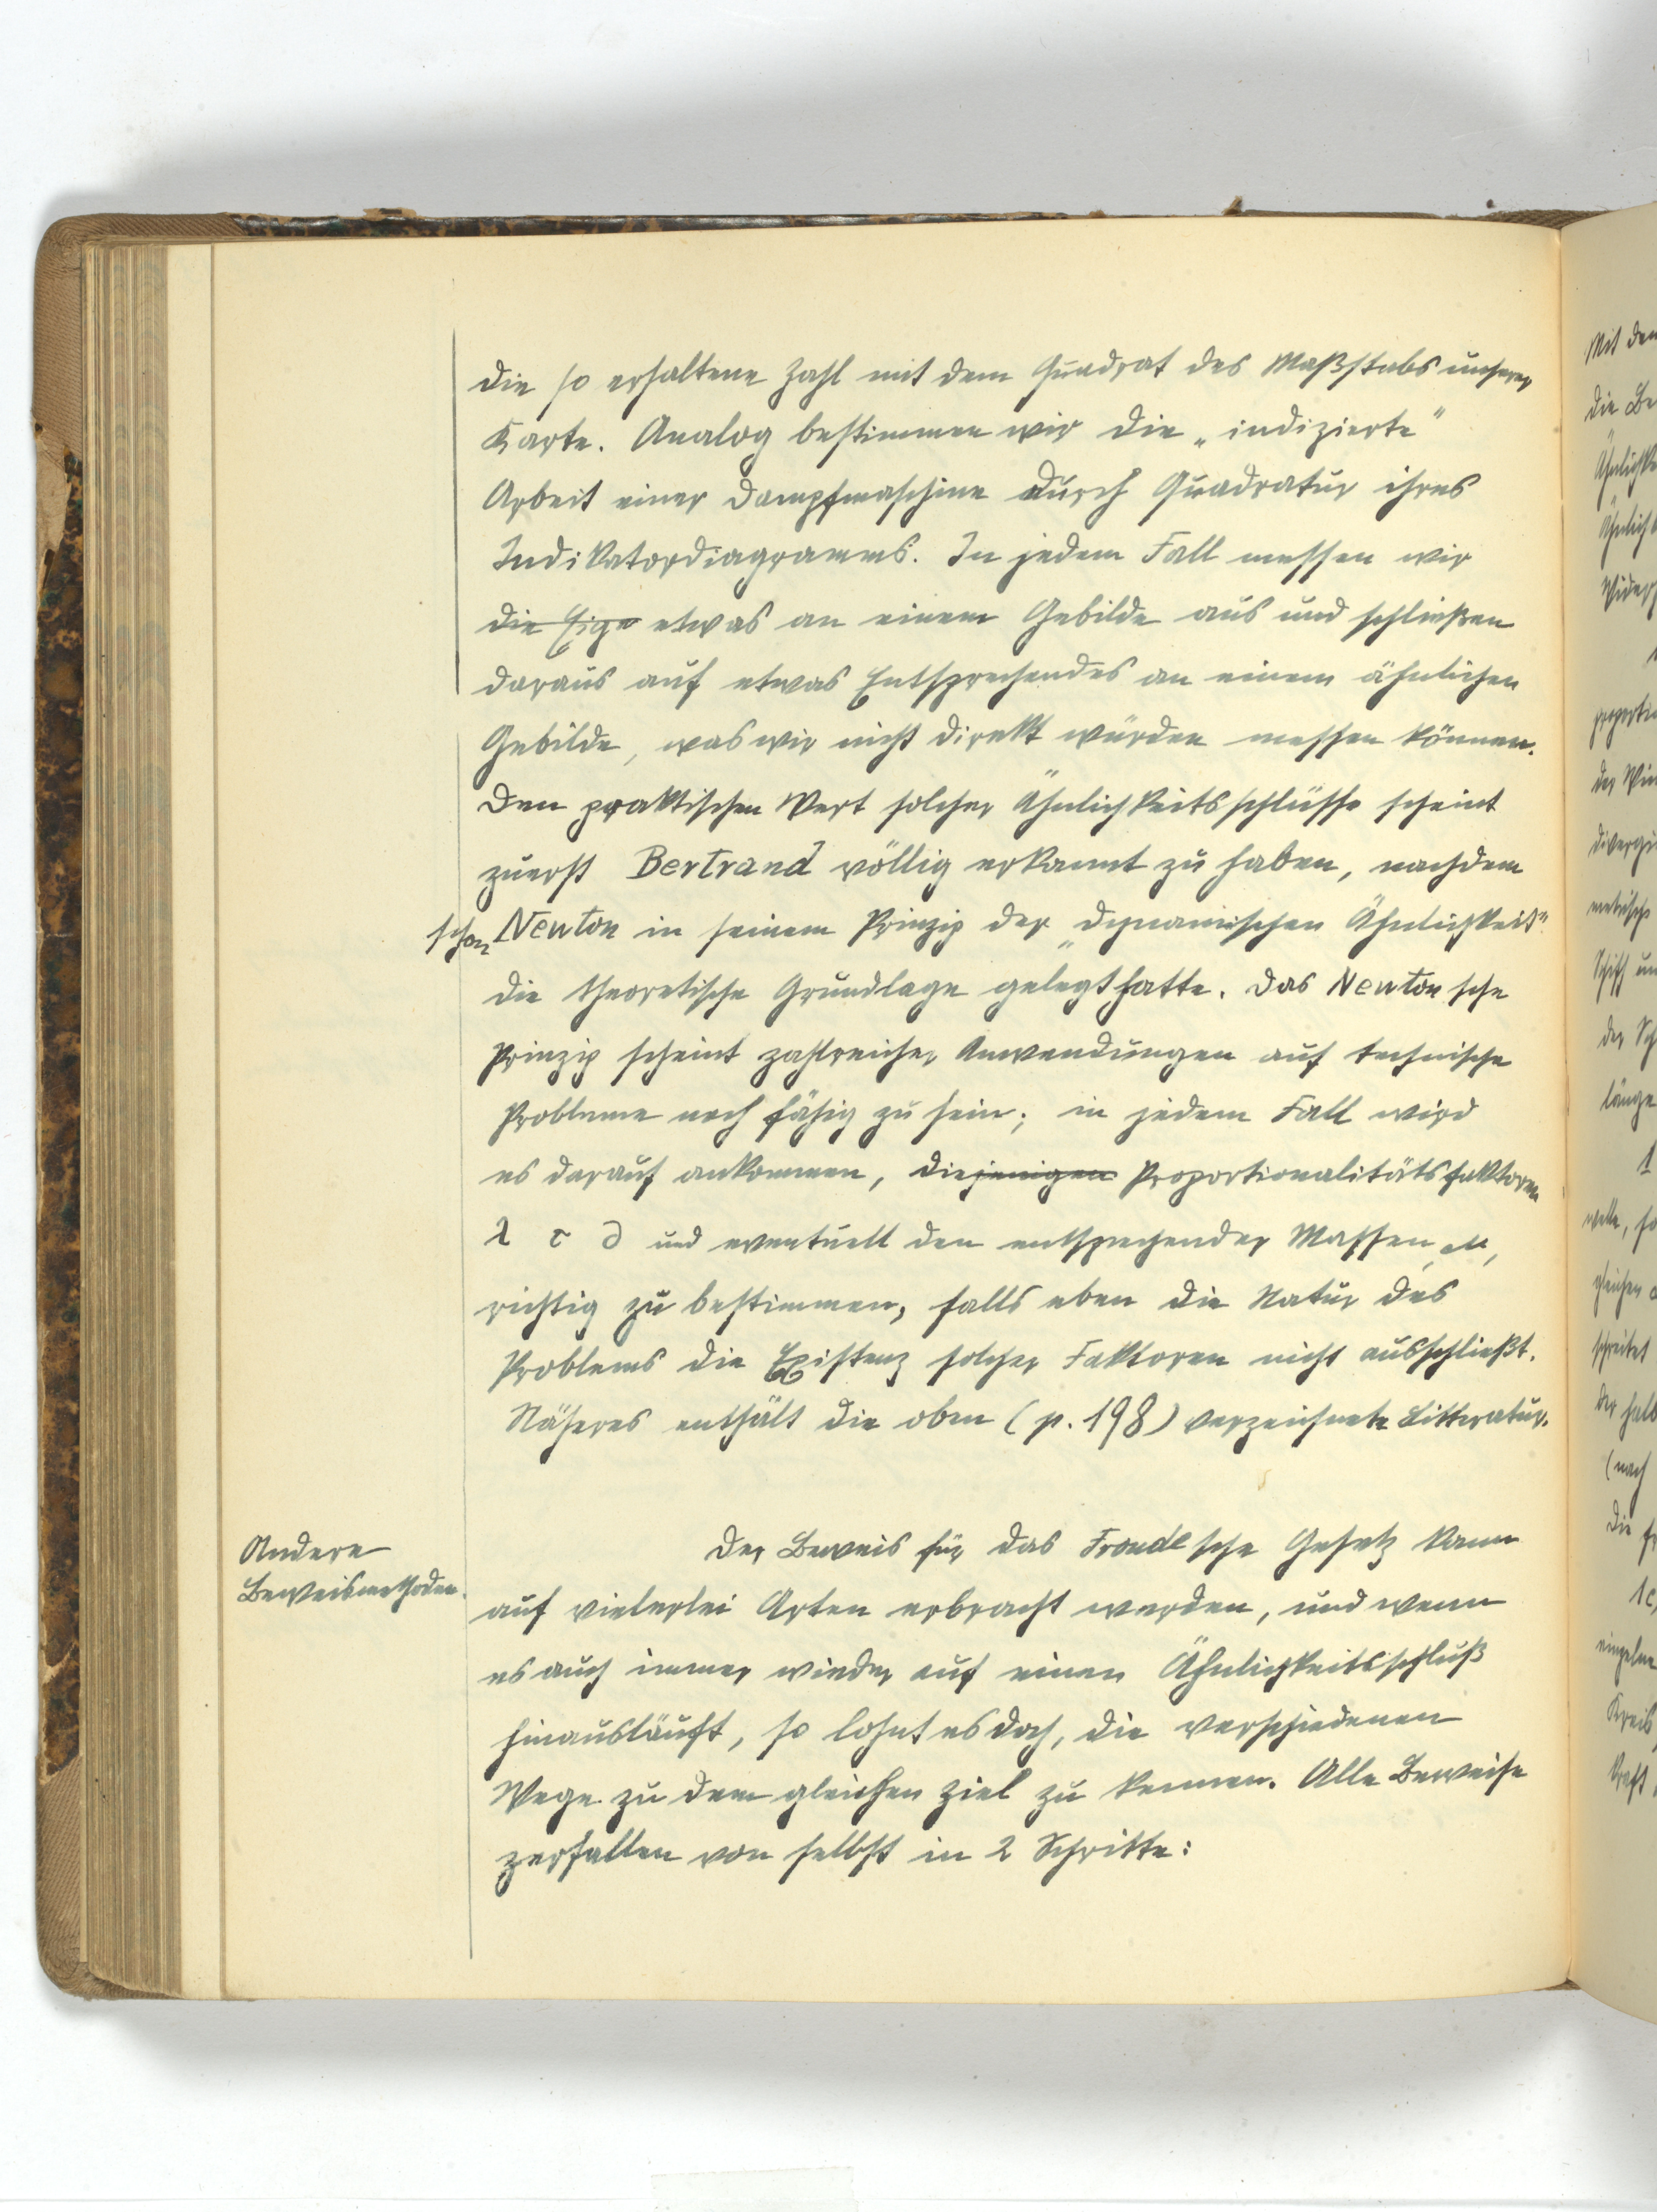 die so erhaltene Zahl mit dem Quadrat des Maßstabs unserer
Karte. Analog bestimmen wir die „indizierte"
Arbeit einer Dampfmaschine durch Quadratur ihres
Indikatordiagramms. In jedem Fall messen wir
die Eige etwas an einem Gebilde aus und schließen
daraus auf etwas Entsprechendes an einem ähnlichen
Gebilde, was wir nicht direkt würden messen können.
Den praktischen Wert solcher Ähnlichkeitsschlüsse scheint
zuerst Bertrand völlig erkannt zu haben, nachdem
schon Newton in seinem Prinzip der „dynamischen Ähnlichkeit"
die theoretische Grundlage gelegt hatte. Das Newton'sche
Prinzip scheint zahlreicher Anwendungen auf technische
Probleme noch fähig zu sein; in jedem Fall wird
es darauf ankommen, diejenigen Proportionalitätsfaktoren
λ τ δ und eventuell den entsprechender Massen, μ,
richtig zu bestimmen, falls eben die Natur des
Problems die Existenz solcher Faktoren nicht ausschließt.
Näheres enthält die oben (p. 198) verzeichnete Litteratur.
Andere
Beweismethoden.
Der Beweis für das Froude'sche Gesetz kann
auf vielerlei Arten erbracht werden, und wenn
es auch immer wieder auf einen Ähnlichkeitsschluß
hinausläuft, so lohnt es doch, die verschiedenen
Wege zu dem gleichen Ziel zu kennen. Alle Beweise
zerfallen von selbst in 2 Schritte:
Mit den
die Be